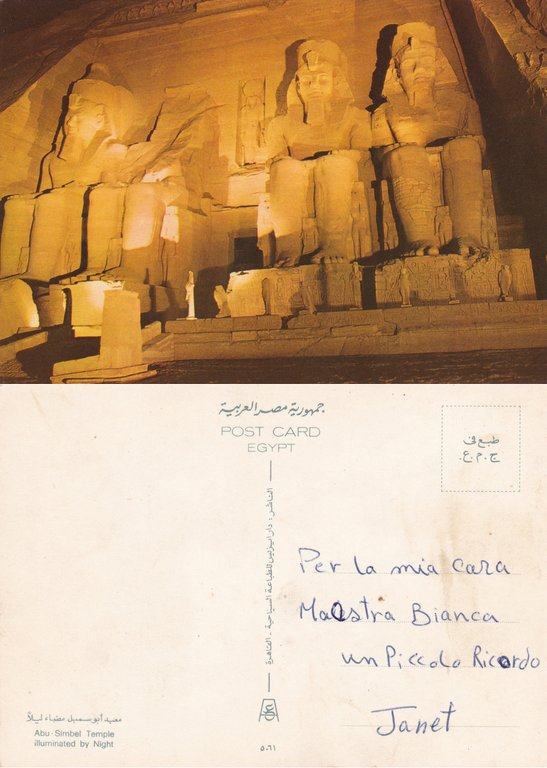 جمهورية مصر العربية
POST CARD
EGYPT
طبع في
ج.م.ع.
الناشر: دار ايزيس للطباعة السياحية - القاهرة
Per la mia cara
Maestra Bianca
un Piccolo Ricordo
Janet
معبد أبو سمبل مضاء ليلاً
Abu-Simbel Temple
illuminated by Night
٥٠٦١